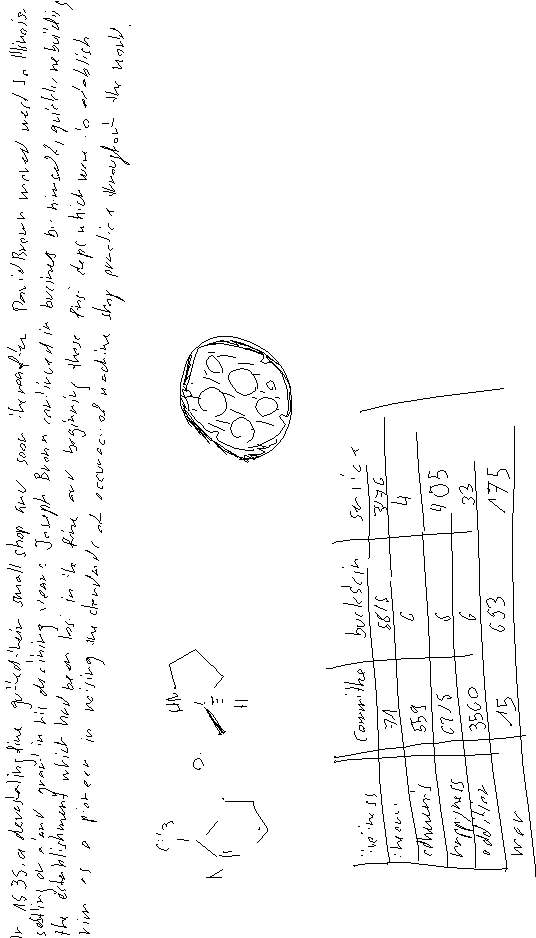 In 1835, a devastating fire gutted their small shop and soon thereafter David Brown moved west to Illinois
settling on a land grant in his declining years Joseph Brown continued in business by himself, quickly rebuilding
the establishment which had been lost in the fire and beginning those first steps which were to establish
him as a pioneer in raising the standards of accuracy of machine shop practice throughout the world.
CH3
N
O
HN
H
committee buckskin service
71 5615 3476
559 6 4
6715 6 405
happyness 3560 6 33
addition 15 653 175
wav